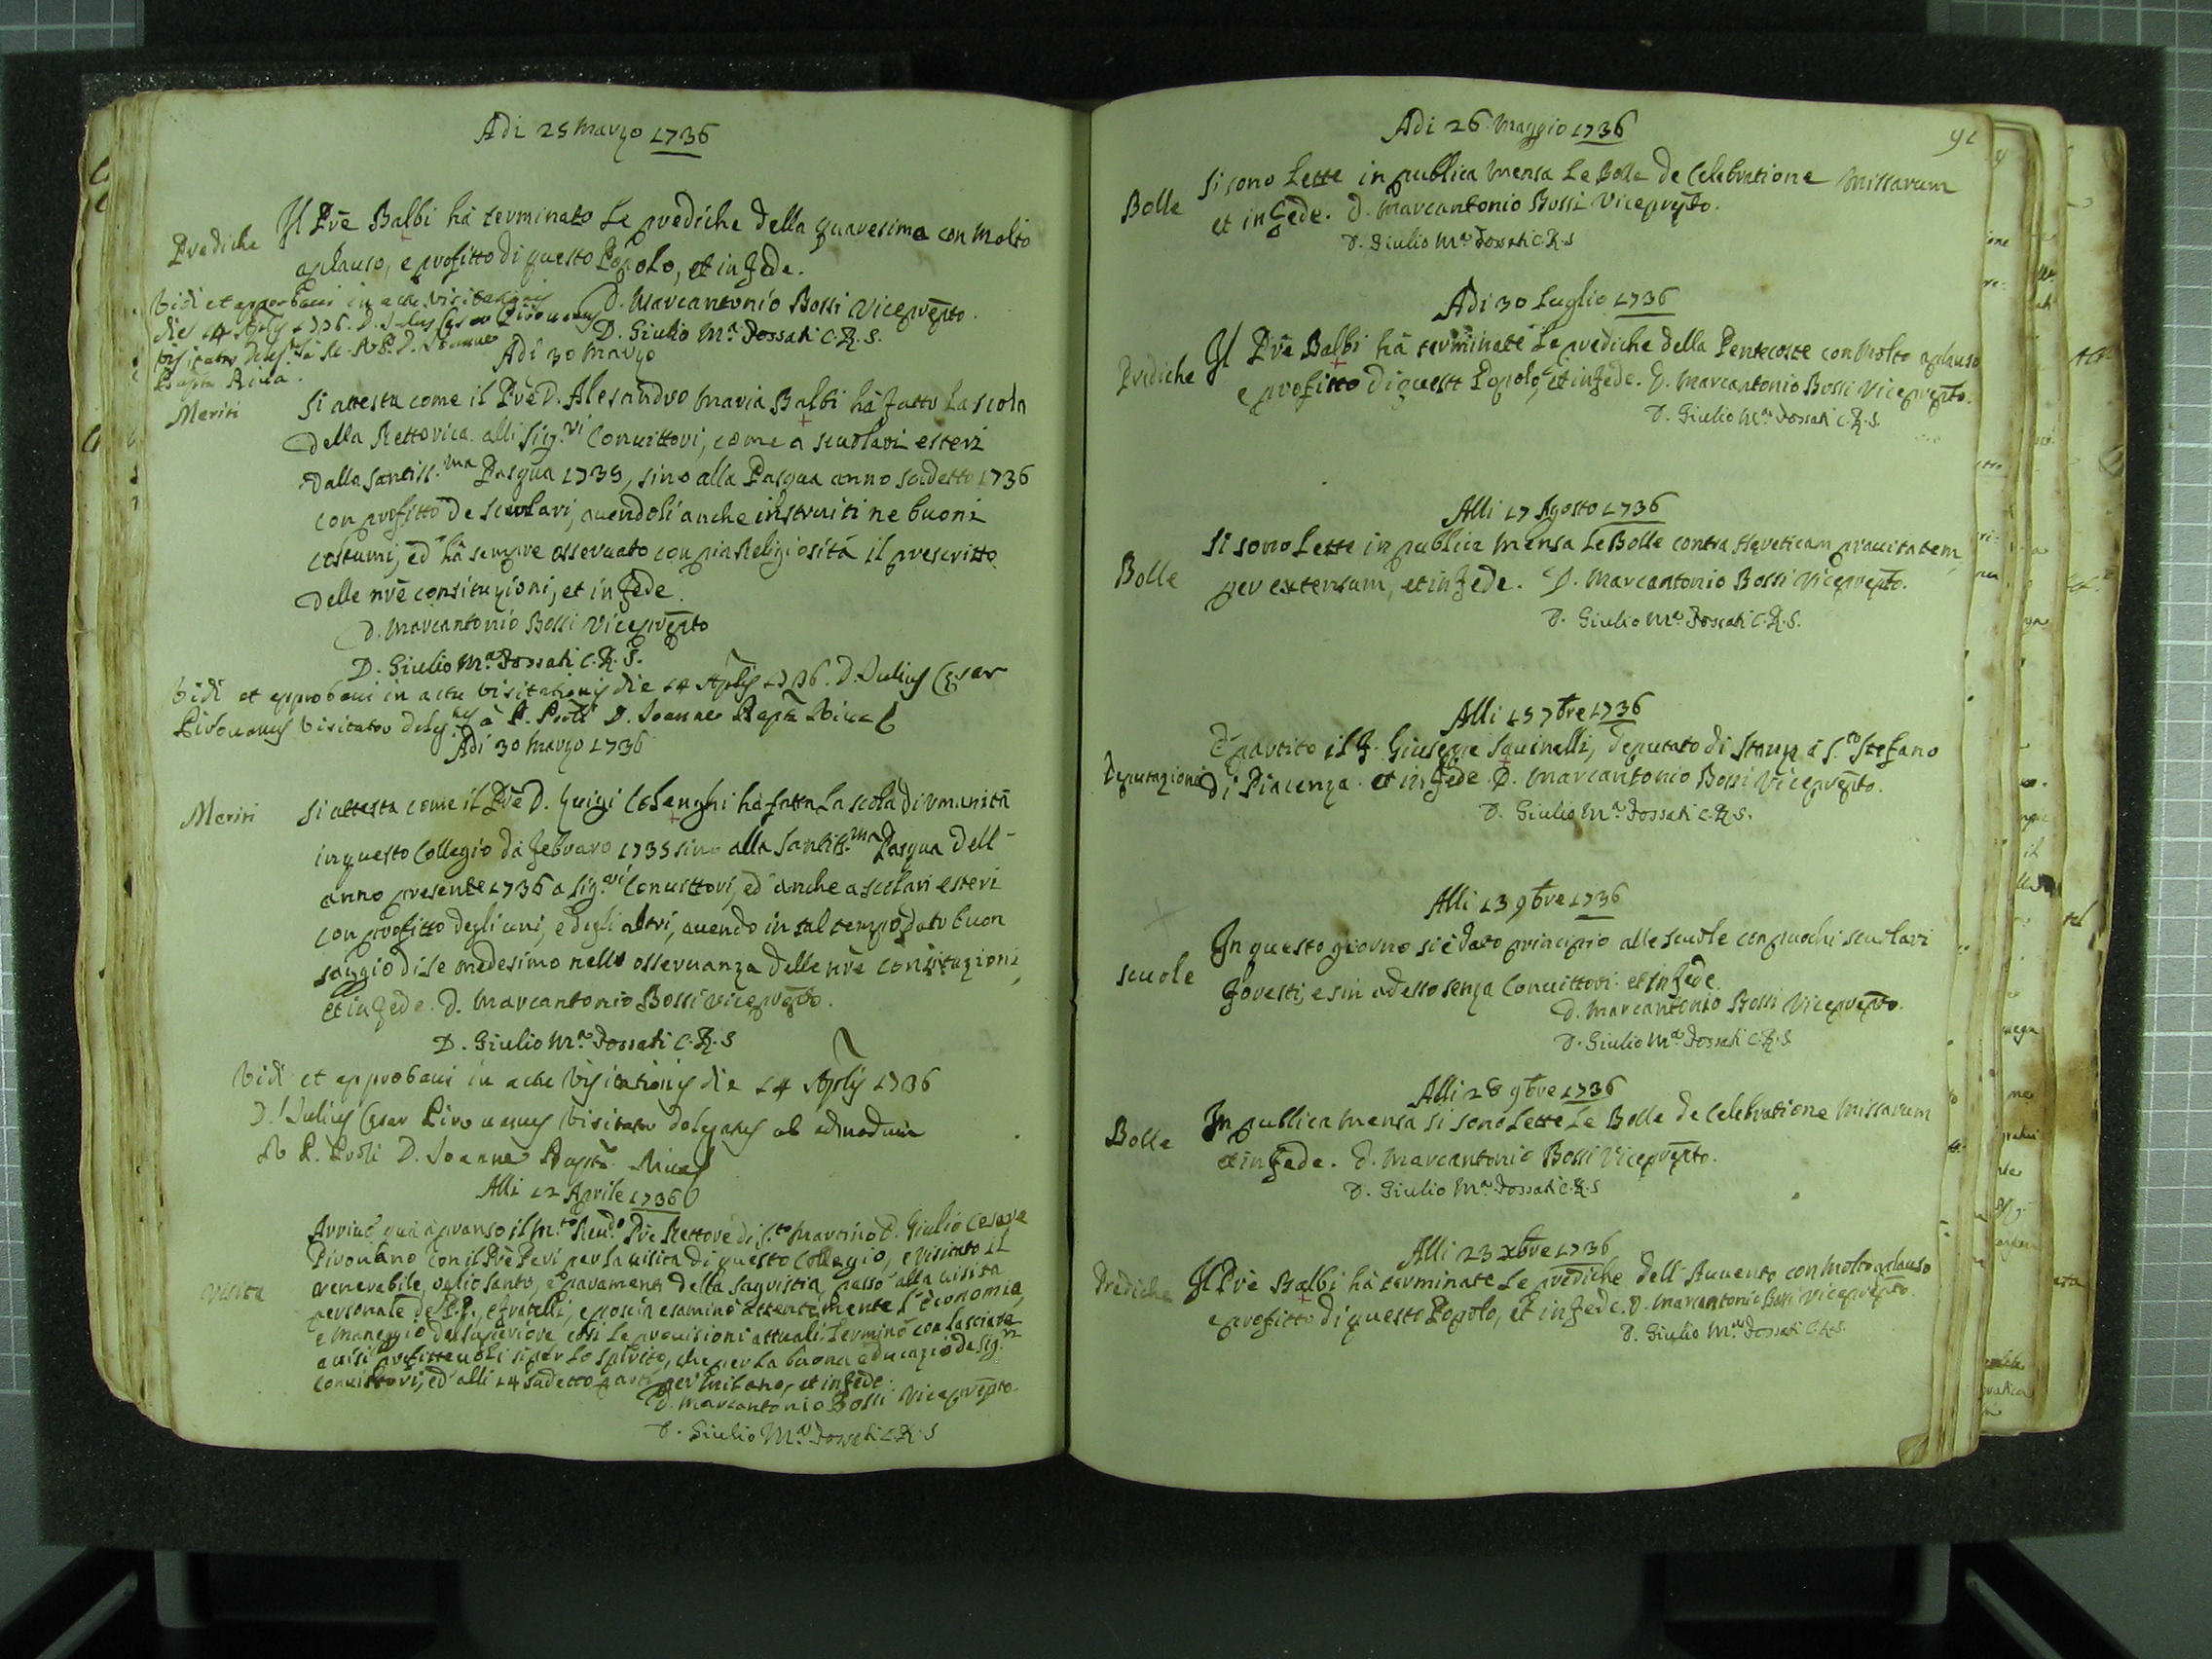 Adi 25 Marzo 1736
Prediche
Il Pre Balbi hà terminato le prediche della quaresima con molto
aplauso, e profitto di questo Popolo, et in fede.
D. Marcantonio Bossi Viceprepto.
D. Giulio Ma. Fossati C.R.S.
Vidi et approbavi in actu Visitationis
die 14 Aplis 1736. D. Julius Cesar Pirovanus
Visitator
Bapta Riva.
Adi 30 Marzo
Meriti
Si attesta come il Pre D. Alesandro Maria Balbi hà fatto la scola
della Rettorica alli Sig.ri Convittori, come a scuolari esteri
dalla Santiss.ma Pasqua 1735, sino alla Pasqua anno sudetto 1736
con profitto de scuolari, avendoli anche instruiti ne buoni
costumi, ed hà sempre osservato con pia Religiosità il prescritto
delle nre constituzioni, et in fede.
D. Marcantonio Bossi Viceprepto
D. Giulio Ma. Fossati C.R.S.
Vidi et approbavi in actu Visitationis die 14 Aplis 1736. D. Julius Cesar
Pirovanus Visitator à D. Joanne Bapta Riva
Adi 30 Marzo 1736
Meriti
Si attesta come il Pre D. Luigi Colenghi hà fatta la scola di Umanità
in questo Collegio da Febraro 1735 sino alla Santiss.ma Pasqua dell'
anno presente 1736 a Sig.ri Convittori, ed anche a scolari esteri
con profitto degli uni, e degli altri, avendo in tal tempo dato buon
saggio di se medesimo nello osservanza delle nre constituzioni,
et in fede. D. Marcantonio Bossi Viceprepto.
D. Giulio Ma. Fossati C.R.S
Vidi et approbavi in actu Visitationis die 14 Aplis 1736
D. Julius Cesar Pirovanus Visitator delegatus ab admodum
R. P. D. Joanne Bapta Riva
Alli 12 Aprile 1736
Visita
Arrivò quà à pranso il M.to Reud.o Pre Rettore di S.to Martino D. Giulio Cesare
Pirovano con il Pre Peri per la visita di questo Collegio, e visitato il
venerabile, oglio santo, e paramenti della sagristia, passò alla visita
personale de P.P., e fratelli, e poscia esaminò attentemente l'economia,
e maneggio del superiore, così le provisioni attuali. Terminò con lasciare
avisi profittevoli si per lo spirito, che per la buona educazio de Sig.ri
Convittori, ed alli 14 sudetto partì per Milano, et in fede.
D. Marcantonio Bossi Viceprepto.
D. Giulio Ma. Fossati C.R.S
91
Adi 26 Maggio 1736
Bolle
Si sono lette in publica Mensa le Bolle de Celebratione Missarum
et in fede. D. Marcantonio Bossi Viceprepto.
D. Giulio Ma. Fossati C.R.S
Adi 30 Luglio 1736
Prediche
Il Pre Balbi hà terminate le prediche della Pentecoste con molto aplauso
e profitto di questo Popolo, et in fede. D. Marcantonio Bossi Viceprepto.
D. Giulio Ma. Fossati C.R.S.
Alli 17 Agosto 1736
Bolle
Si sono lette in publica Mensa le Bolle contra Hereticam pravitatem
per extensum, et in fede. D. Marcantonio Bossi Viceprepto.
D. Giulio Ma. Fossati C.R.S.
Alli 15 7bre 1736
Deputazioni
È partito il F. Giuseppe Savinelli, deputato di Stanza à S.to Stefano
di Piacenza et in fede. D. Marcantonio Bossi Viceprepto.
D. Giulio Ma. Fossati C.R.S.
Alli 13 9bre 1736
Scuole
In questo giorno si è dato principio alle scuole con puochi scuolari
forestì, e sin adesso senza Convittori et in fede.
D. Marcantonio Bossi Viceprepto.
D. Giulio Ma. Fossati C.R.S
Alli 28 9bre 1736
Bolle
In publica Mensa si sono lette le Bolle de Celebratione Missarum
et in fede. D. Marcantonio Bossi Viceprepto.
D. Giulio Ma. Fossati C.R.S
Alli 23 Xbre 1736
Prediche
Il Pre Balbi hà terminate le prediche dell'Avvento con molto aplauso
e profitto di questo Popolo, et in fede. D. Marcantonio Bossi Viceprepto.
D. Giulio Ma. Fossati C.R.S.